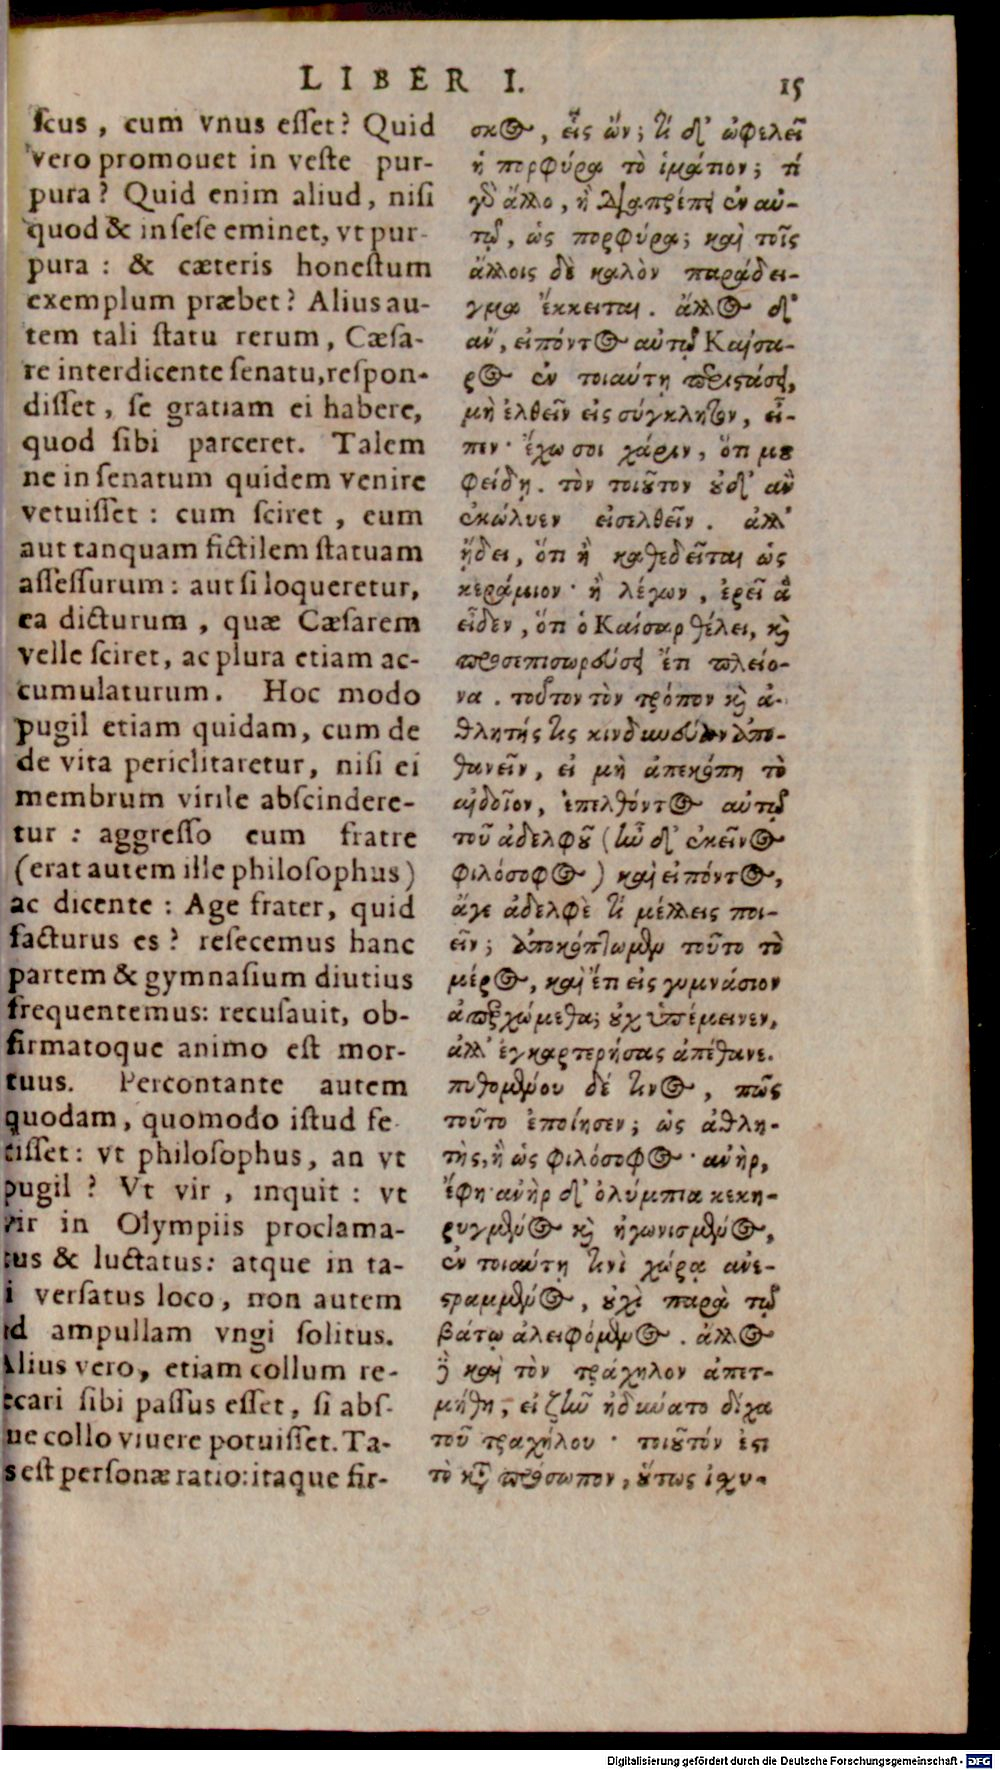 LIBER I. 15
scus, cum vnus esset? Quid
vero promouet in veste pur-
pura? Quid enim aliud, nisi
quod & in sese eminet, vt pur-
pura: & cæteris honestum
exemplum præbet? Alius au-
tem tali statu rerum, Cæsa-
re interdicente senatu, respon-
disset, se gratiam ei habere,
quod sibi parceret. Talem
ne in senatum quidem venire
vetuisset: cum sciret, eum
aut tanquam fictilem statuam
assessurum: aut si loqueretur,
ea dicturum, quæ Cæsarem
velle sciret, ac plura etiam ac-
cumulaturum. Hoc modo
pugil etiam quidam, cum de
de vita periclitaretur, nisi ei
membrum virile abscindere-
tur: aggresso eum fratre
(erat autem ille philosophus)
ac dicente: Age frater, quid
facturus es? resecemus hanc
partem & gymnasium diutius
frequentemus: recusauit, ob-
firmatoque animo est mor-
tuus. Percontante autem
quodam, quomodo istud fe-
cisset: vt philosophus, an vt
pugil? Vt vir, inquit: vt
vir in Olympiis proclama-
tus & luctatus: atque in ta-
i versatus loco, non autem
d ampullam vngi solitus.
Alius vero, etiam collum re-
ecari sibi passus esset, si abs-
ue collo viuere potuisset. Ta-
s est personæ ratio: itaque fir-
σκος, εἷς ὤν; τί δ' ὠφελεῖ
ἡ πορφύρα τὸ ἱμάτιον; τί
γὰρ ἄλλο, ἢ διαπρέπει ἐν αὐ-
τῷ, ὡς πορφύρα; καὶ τοῖς
ἄλλοις δὲ καλὸν παράδει-
γμα ἔκκειται. ἄλλος δ'
ἂν, εἰπόντος αὐτῷ Καίσα-
ρος ἐν τοιαύτῃ περιστάσει,
μὴ ἐλθεῖν εἰς σύγκλητον, εἶ-
πεν· ἔχω σοι χάριν, ὅτι μου
φείδῃ. τὸν τοιοῦτον οὐδ' ἂν
ἐκώλυεν εἰσελθεῖν. ἀλλ'
ᾔδει, ὅτι ἢ καθεδεῖται ὡς
κεράμιον· ἢ λέγων, ἐρεῖ ἃ
εἶδεν, ὅτι ὁ Καίσαρ θέλει, καὶ
προσεπισωρεύσει ἔτι πλείο-
να. τοῦτον τὸν τρόπον καὶ ἀ-
θλητής τις κινδυνεύων ἀπο-
θανεῖν, εἰ μὴ ἀπεκόπη τὸ
αἰδοῖον, ἐπελθόντος αὐτῷ
τοῦ ἀδελφοῦ (ἦν δ' ἐκεῖνος
φιλόσοφος) καὶ εἰπόντος,
ἄγε ἀδελφὲ τί μέλλεις ποι-
εῖν; ἀποκόπτωμεν τοῦτο τὸ
μέρος, καὶ ἔτι εἰς γυμνάσιον
ἀπερχώμεθα; οὐχ ὑπέμεινεν,
ἀλλ' ἐγκαρτερήσας ἀπέθανε.
πυθομένου δέ τινος, πῶς
τοῦτο ἐποίησεν; ὡς ἀθλη-
τὴς, ἢ ὡς φιλόσοφος· ἀνὴρ,
ἔφη· ἀνὴρ δ' ὀλύμπια κεκη-
ρυγμένος καὶ ἠγωνισμένος,
ἐν τοιαύτῃ τινὶ χώρᾳ ἀνε-
στραμμένος, οὐχὶ παρὰ τῷ
βάτῳ ἀλειφόμενος. ἄλλος
καὶ τὸν τράχηλον ἀπετ-
μήθη, εἰ ζῆν ἠδύνατο δίχα
τοῦ τραχήλου· τοιοῦτόν ἐστι
τὸ κατὰ πρόσωπον, οὕτως ἰσχυ-
Digitalisierung gefördert durch die Deutsche Forschungsgemeinschaft - DFG